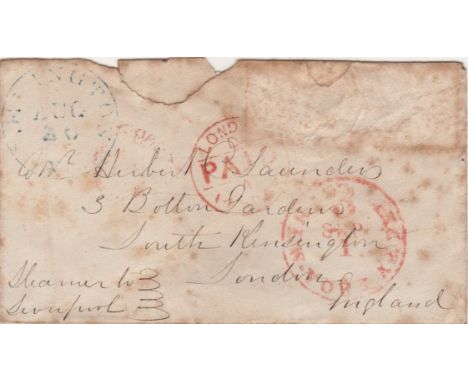 AUG
30
LOND
PA
Herbert Saunders
3 Bolton Gardens
South Kensington
London
England
Steamer to
Liverpool
3
NEW YORK